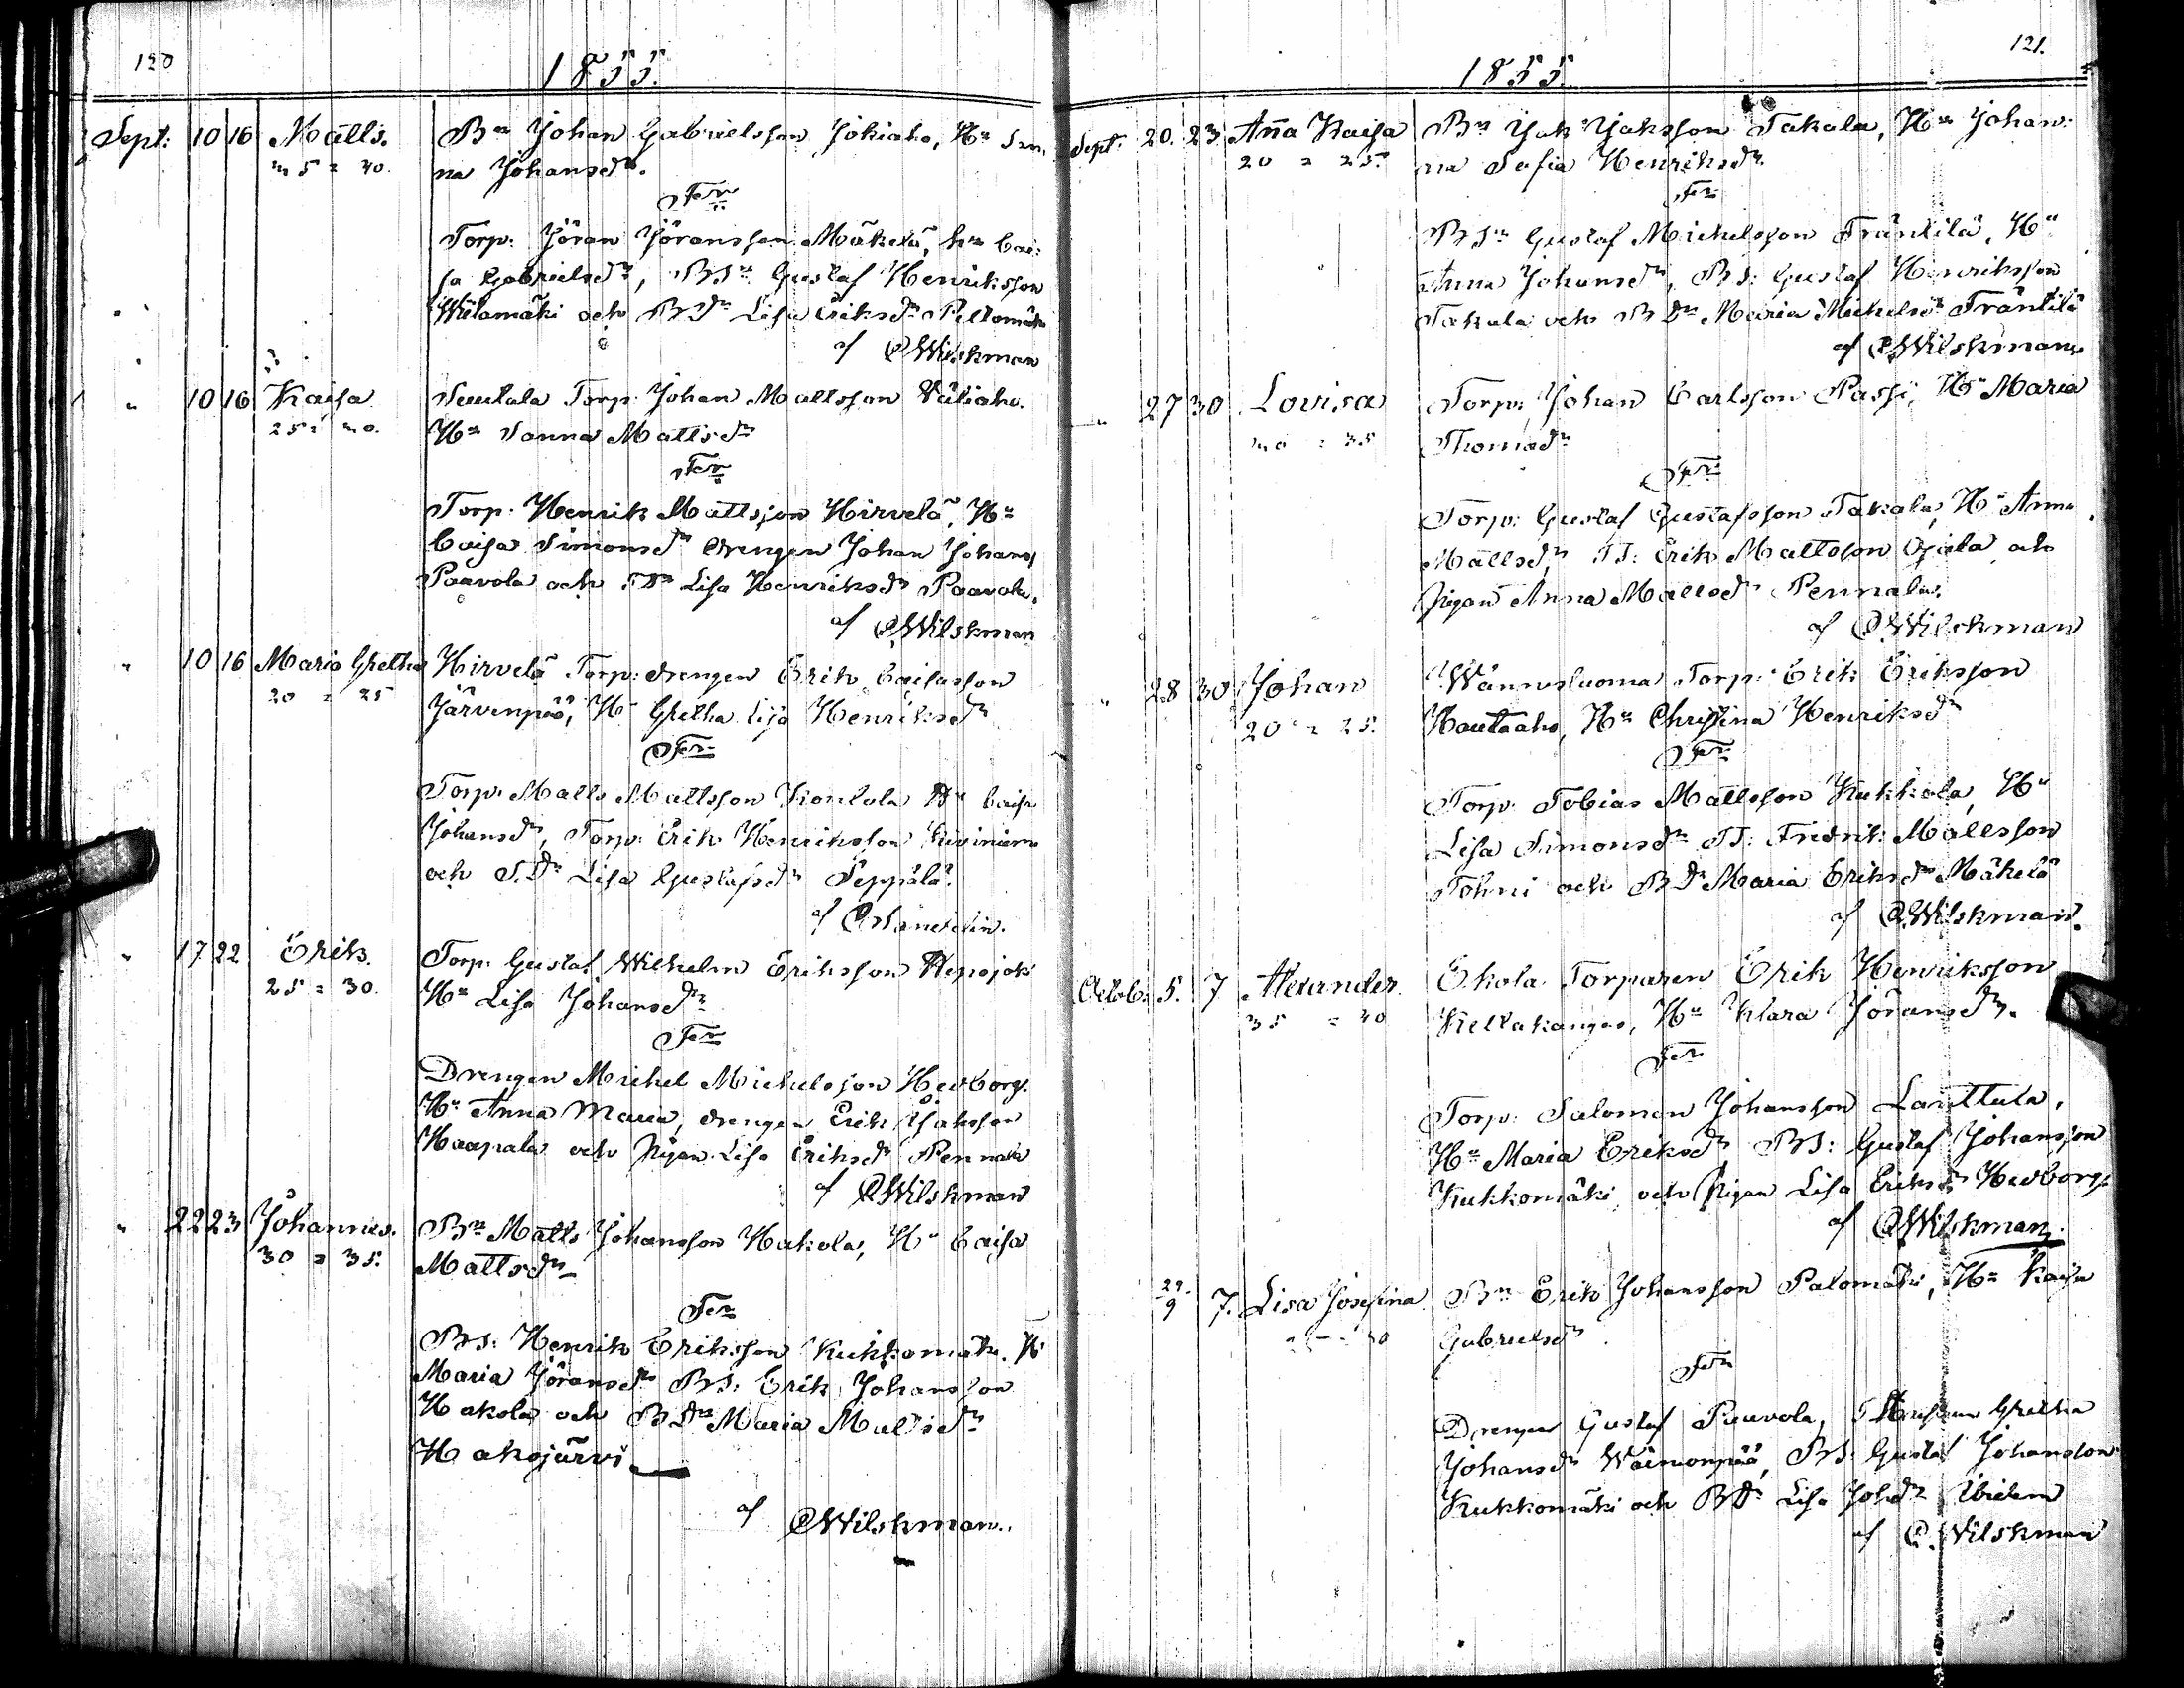 120
1855.
Sept: 10 16 Matts. Bn Johan Gabrielsson Jokiaho, Hn San
35 = 40. na Johansdr.
Ferr
Torp: Jöran Jöransson Mäkelä, hn Cai:
sa Gabrielsdr, BSn Gustaf Henriksson
Wiitamäki och BDr Lisa Eriksdr Peltomäki
af CWilskman
" 10 16 Kaisa Suutala Torp: Johan Mattsson Väliaho.
25 = 30. Hn Sanna Mattsdr
Ferr
Torp. Henrik Mattsson Hirvelä, Hn
Caisa Simonsdr drengen Johan Johans
Paavola och TDr Lisa Henriksdr Paavola.
af CWilskman
" 10 16 Maria Gretha Hirvelä Torp: drengen Erik Caisasson
20 = 25 Järvenpää, Hn Gretha Lisa Henriksdr
Ferr
Torp: Matts Mattsson Kontola Hn Caisa
Johansdr, Torp: Erik Henriksson Kiviniemi
och S.Dr Lisa Gustafsdr Seppälä.
af
" 17 22 Erik. Torp: Gustaf Wilhelm Eriksson Repojoki
25 = 30. Hn Lisa Johansdr
Ferr
Drengen Michel Michelsson Hedborg.
Hn Anna Maria, drengen Erik Jaksson
Haapala och Pigan Lisa Eriksdr Pennala
af CWilskman
" 22 23 Johannes. Bn Matts Johansson Hakola, Hn Caisa
30 = 35. Mattsdr
Ferr
BS: Henrik Eriksson Kukkomäki. Hn
Maria Jöransdr BS: Erik Johansson
Hakola och BDr Maria Mattsdr
Hakojärvi
af CWilskman.
121.
1855.
Sept: 20. 23. Anna Kaisa Bn Jak: Jaksson Takala, Hn Johan:
20 = 25. na Sofia Henriksdr
Ferr
BSn Gustaf Michelsson Träntilä, Hn
Anna Johansdr, BS: Gustaf Henriksson
Takala och BDr Maria Michelsdr Träntilä
af CWilskman
" 27 30 Lovisa Torp: Johan Carlsson Passi, Hn Maria
30 = 35 Thomasdr
Ferr
Torp: Gustaf Gustafsson Takala, Hn Anna
Mattsdr, TS: Erik Mattsson Ojala och
Pigan Anna Mattsdr Pennala.
af CWilskman
" 28 30 Johan Wännusluoma Torp: Erik Eriksson
20 = 25. Hautaaho, Hn Christina Henriksdr
Ferr
Torp: Tobias Mattsson Kukkola, Hn
Lisa Simonsdr TS: Fredrik Mattsson
Tohni och BDr Maria Eriksdr Mäkelä
af CWilskman.
Octob: 5. 7 Alexander. Ekola Torparen Erik Henriksson
35 = 40 Keltakangas, Hn Klara Jöransdr.
Ferr
Torp: Salomon Johansson Lanttula,
Hn Maria Eriksdr BS: Gustaf Johansson
Kukkomäki och Pigan Lisa Eriksdr Hedborg.
af CWilskman.
29/9 7. Lisa Josefina Bn Erik Johansson Palomäki, Hn Kaisa
Gabrielsdr
Ferr
Drengen Gustaf Paavola, Gretha
Johansdr Wainionpää, BS: Gustaf Johansson
Kukkomäki och BDr Lisa Johsdr
af CWilskman